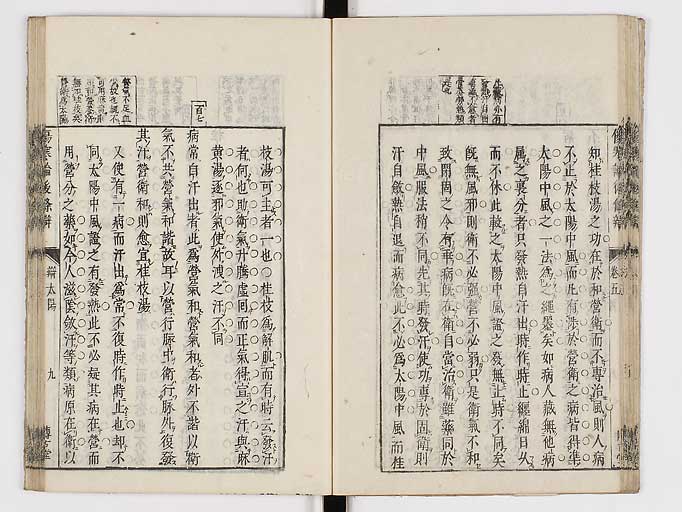 知桂枝湯之功在於和營衛而不專治風則人病
不止於太陽中風而凡有渉於營衛之病皆得準
太陽中風之一法爲之繩墨矣如病人藏無他病
屬之裏分者只發熱自汗出時作時止纏綿日久
而不休此較之太陽中風證之發無止時不同矣
既無風邪則衛不必強營不必弱只是衛氣不和
致閉固之令有乖病既在衛自當治衛雖藥同於
中風服法稍不同先其時發汗使功專於固衛則
汗自斂熱自退而病愈此不必爲太陽中風而桂
枝湯可主者一也桂枝爲解肌而有時云發汗
者何也助衛氣升騰虛回而正氣得宣之汗與麻
黄湯逐邪氣使外洩之汗不同
百七
病常自汗出者此爲營氣和營氣和者外不諧以衛
氣不共營氣和諧故耳以營行脉中衛行脉外復發
其汗營衛和則愈宜桂枝湯
又使有一病而汗出爲常不復時作時止也却不
同太陽中風證之有發熱此不必疑其病在營而
用營分之藥如今人滋陰斂汗等類病原在衛以
傷寒論後條辨
辨太陽
九